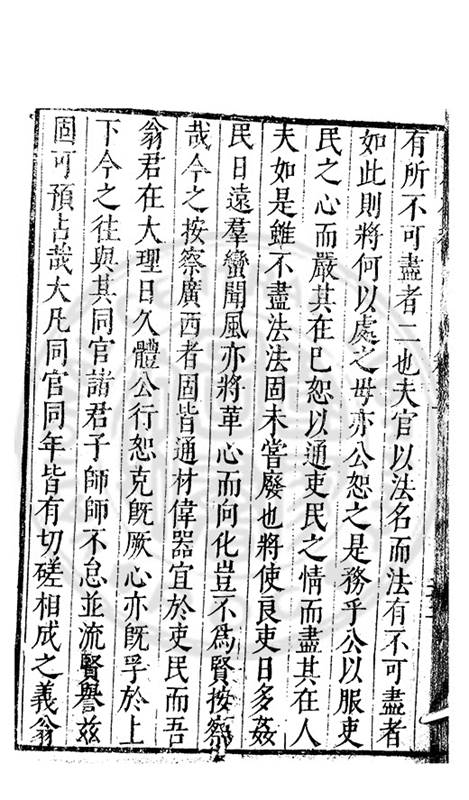 有所不可盡者二也夫官以法名而法有不可盡者
如此則將何以處之毋亦公恕之是務乎公以服吏
民之心而嚴其在已恕以通吏民之情而盡其在人
夫如是雖不盡法法固未嘗廢也將使良吏日多姦
民日遠羣蠻聞風亦將革心而向化豈不爲賢按察
哉今之按察廣西者固皆通材偉器宜於吏民而吾
翁君在大理日久體公行恕克旣厥心亦旣孚於上
下今之往與其同官諸君子師師不怠並流賢譽玆
固可預占哉大凡同官同年皆有切磋相成之義翁